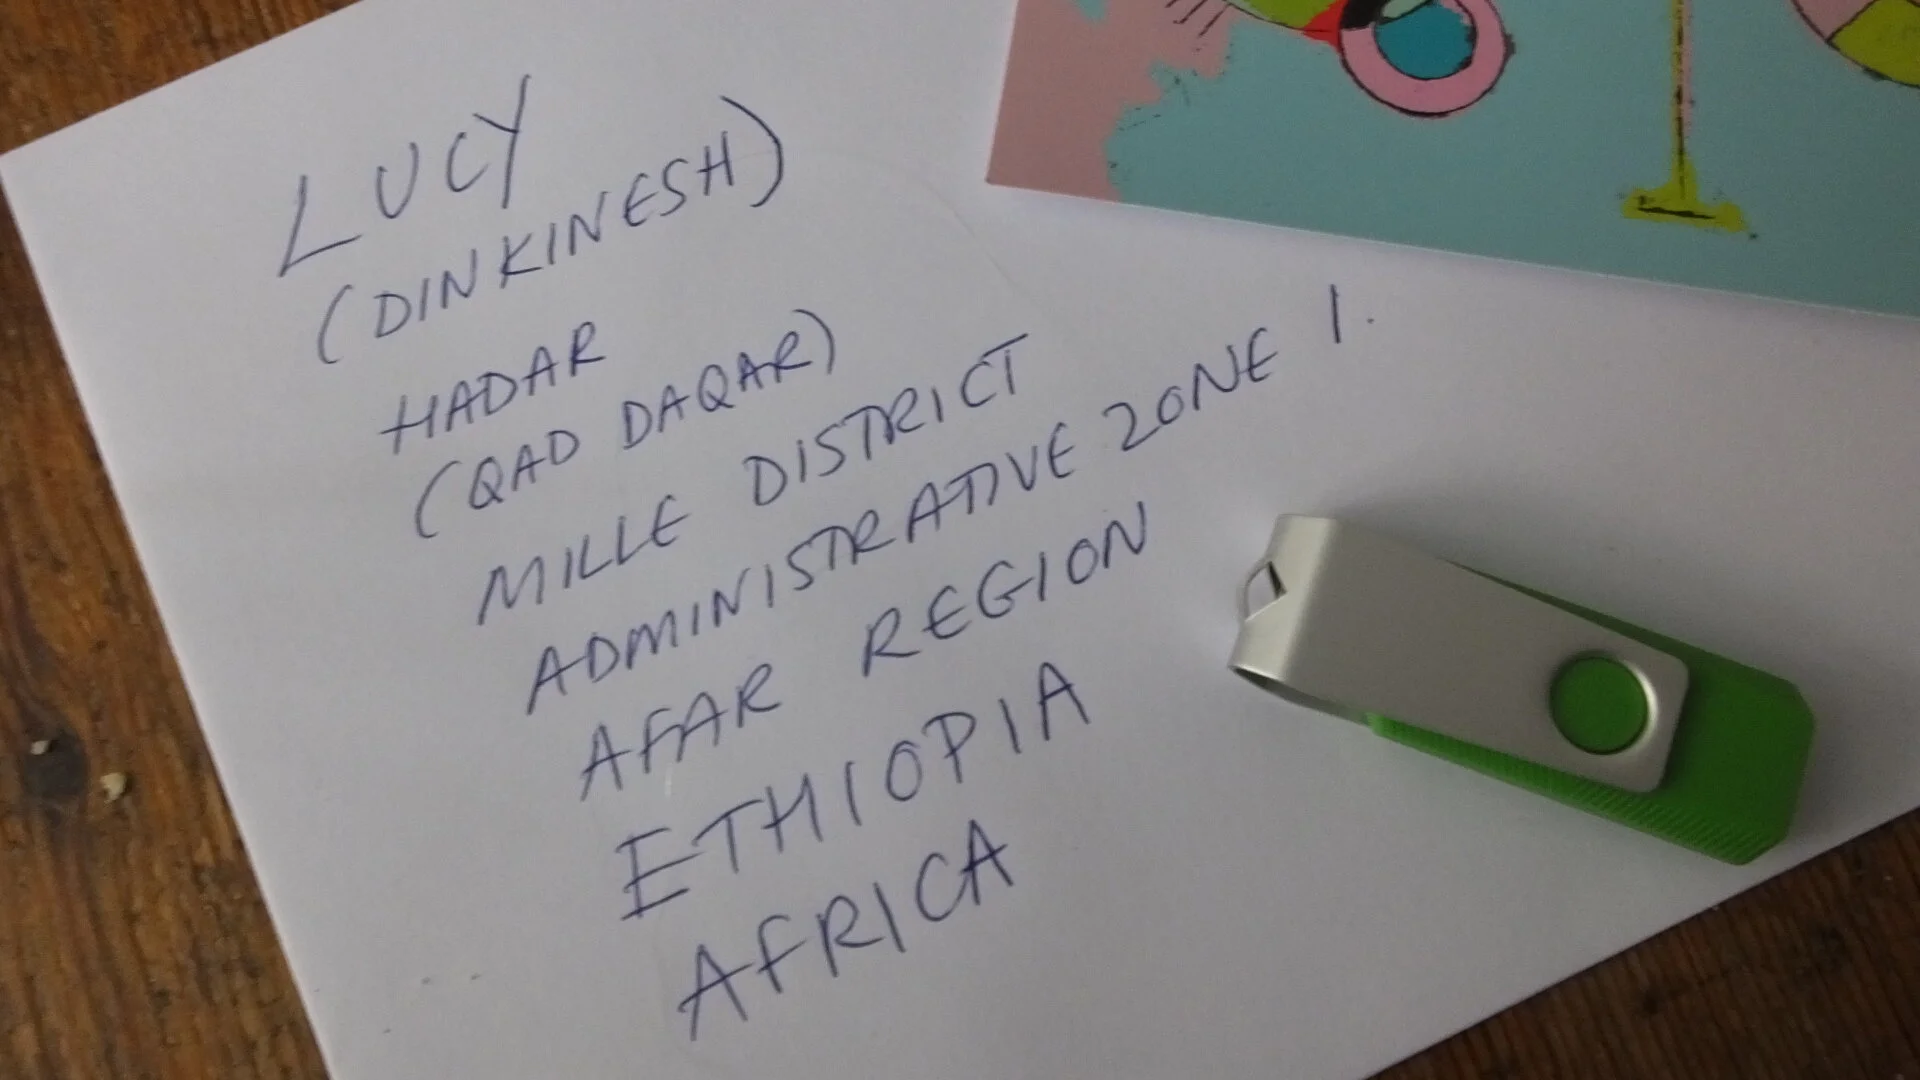 LUCY
(DINKINESH)
HADAR
(QAD DAQAR)
MILLE DISTRICT
ADMINISTRATIVE ZONE 1.
AFAR REGION
ETHIOPIA
AFRICA